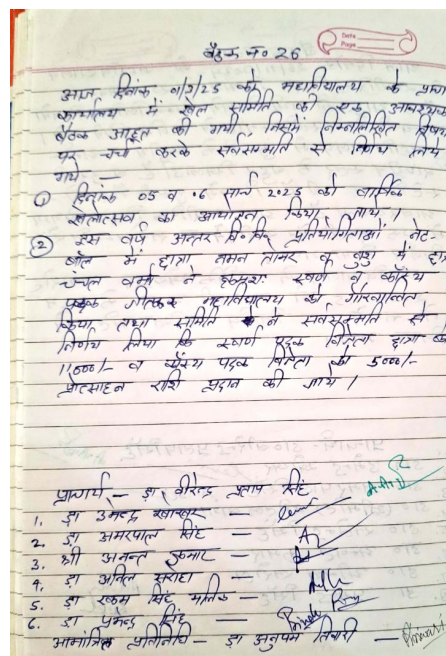 Date
Page
बैठक न० 26
आज दिनांक 01/2/25 को महाविद्यालय के प्राचा
कार्यालय में खेल समिति की एक आवश्यक
बैठक आहूत की गयी जिसमें निम्नलिखित विषयों
पर चर्चा करके सर्वसम्मति से निर्णय लिये
गये —
① दिनांक 05 व 06 मार्च 2025 को वार्षिक
खेलोत्सव का आयोजन किया जाये।
② इस वर्ष अन्तर वि०वि० प्रतियोगिताओं नेट-
बॉल में छात्रा नमन तोमर व वुशु में छात्रा
चंचल वर्मा ने क्रमशः स्वर्ण व काँस्य
पदक जीतकर महाविद्यालय को गौरवान्वित
किया तथा समिति ने सर्वसम्मति से
निर्णय लिया कि स्वर्ण पदक विजेता छात्रा को
11,000/- व काँस्य पदक विजेता को 5000/-
प्रोत्साहन राशि प्रदान की जाये।
प्राचार्य — डा वीरेन्द्र प्रताप सिंह
1. डा उमेन्द्र —
2. डा अमरपाल सिंह —
3. श्री अनन्त कुमार —
4. डा अनिल सरोहा —
5. डा सिंह मलिक —
6. डा प्रमेन्द्र सिंह —
आमंत्रित प्रतिनिधि — डा अनुपम तिवारी —